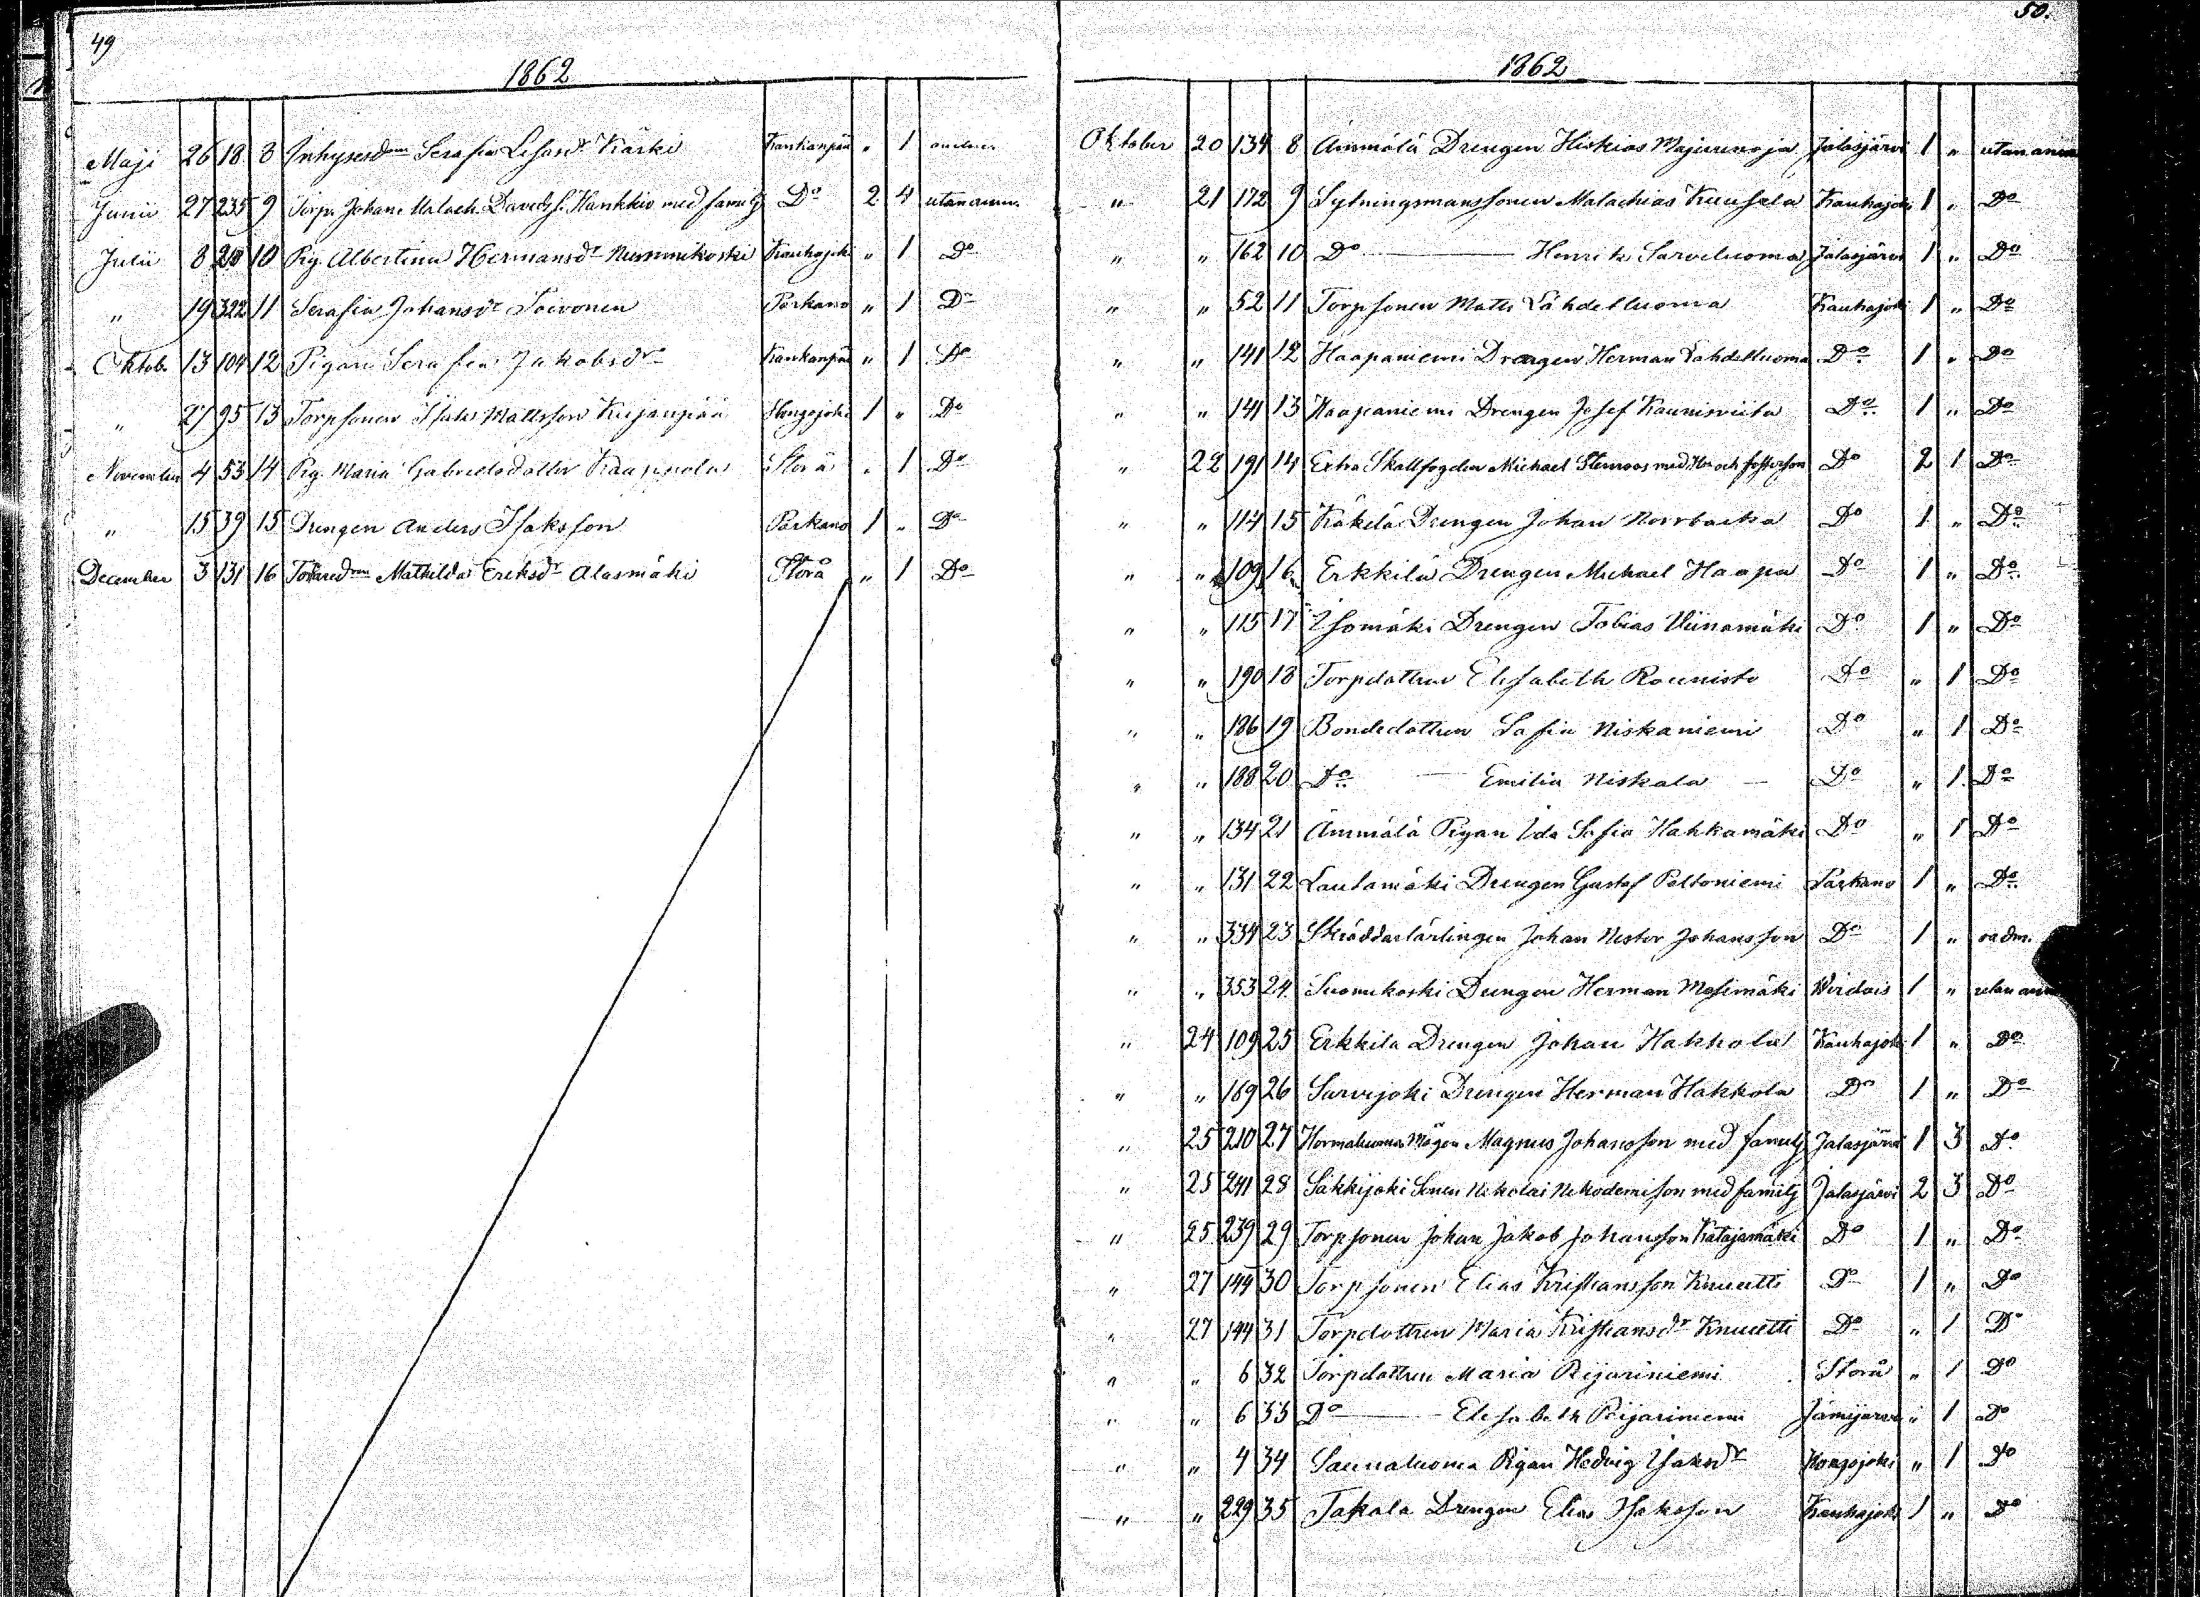 49
1862
Maji 26 18 8 Inhysesdrn Serafia Lisasdr Käski Kankanpää " 1
Junii 27 235 9 Torp. Johan Malach. Davidss. Hankkio med familj Do 2 4 utan anm.
Julii 8 210 10 Pig. Albertina Hermansdr Nummikoski Kauhajoki " 1 Do
" 19 322 11 Serafia Johansdr Toivonen Parkano " 1 Do
Oktob. 13 104 12 Pigan Serafia Jakobsdr Kankanpää " 1 Do
" 27 95 13 Torpsonen Isak Mattsson Kujanpää Hongojoki 1 " Do
November 4 53 14 Pig. Maria Gabrielsdotter Kauppola Storå " 1 Do
" 15 39 15 Drengen Anders Isaksson Parkano 1 " Do
December 3 131 16 Mathilda Eriksdr Alasmäki Storå " 1 Do
50.
1862
Oktober 20 134 8 Ämmälä Drengen Hiskias Majurinoja Jalasjärvi 1 " utan anm
" 21 172 9 Sytningsmanssonen Malachias Kuusela Kauhajoki 1 " Do
" " 162 10 Do — Henrik Sarveluoma Jalasjärvi 1 " Do
" " 52 11 Torpsonen Matts Lähdelluoma Kauhajoki 1 " Do
" " 141 12 Haapaniemi Drengen Herman Lähdelluoma Do 1 " Do
" " 141 13 Haapaniemi Drengen Josef Kaunisviita Do 1 " Do
" 22 191 14 Extra Skallfogden Michael Stenroos med Hu och fosterson Do 2 1 Do
" " 114 15 Käkelä Drengen Johan Norrbacka Do 1 " Do
" " 109 16 Erkkilä Drengen Michael Haapa Do 1 " Do
" " 115 17 Isomäki Drengen Tobias Viinamäki Do 1 " Do
" " 190 18 Torpdottren Elisabeth Rounisto Do " 1 Do
" " 186 19 Bondedottren Sofia Niskaniemi Do " 1 Do
" " 188 20 Do — Emilia Niskala — Do " 1 Do
" " 134 21 Ämmälä Pigan Ida Sofia Hahkamäki Do " 1 Do
" " 131 22 Lautamäki Drengen Gustaf Peltoniemi Parkano 1 " Do
" " 334 23 Skräddarlärlingen Johan Nestor Johansson Do 1 " oadm.
" " 353 24 Suomukoski Drengen Herman Mesimäki Virdois 1 " utan anm
" 24 109 25 Erkkilä Drengen Johan Hakkola Kauhajoki 1 " Do
" " 169 26 Sarvijoki Drengen Herman Hakkola Do 1 " Do
" 25 210 27 Hormaluoma Mågen Magnus Johansson med familj Jalasjärvi 1 3 Do
" 25 241 28 Säkkijoki Sonen Nikolai Nikodemisson med familj Jalasjärvi 2 3 Do
" 25 239 29 Torpsonen Johan Jakob Johansson Katajamäki Do 1 " Do
" 27 144 30 Torpsonen Elias Kristiansson Knuutti Do 1 " Do
" 27 144 31 Torpdottren Maria Kristiansdr Knuutti Do " 1 Do
" " 6 32 Torpdottren Maria Reijariniemi Storå " 1 Do
" " 6 33 Do — Elisabeth Reijariniemi Jämijärvi " 1 Do
" " 4 34 Saunaluoma Pigan Hedvig Isaksdr Hongojoki " 1 Do
" " 229 35 Takala Drengen Elias Isaksson Kauhajoki 1 " Do